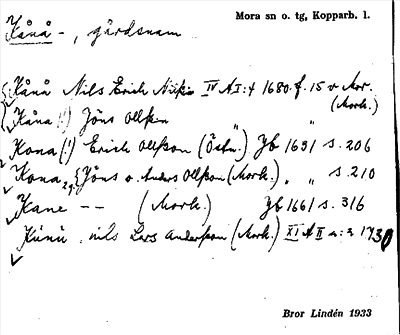 Mora sn o. tg, Kopparb. l.
Kånå -, gårdsnam
Kånå Nils Erich IV A I: 4 1680. f. 15 v Mor.
(Mork.)
Kåna (!) Jöns Ollson " "
Kona (!) Erich Ollson (Östn.) Jb 1651 s. 206
Kona 2 g. Jöns o. Anders Ollson (Mork.) " " s. 210
Kane -- (Mork.) Jb 1661 s. 316
Kånå, nils Lars Anderson (Mork.) XI A II a: 2 1730
Bror Lindén 1933